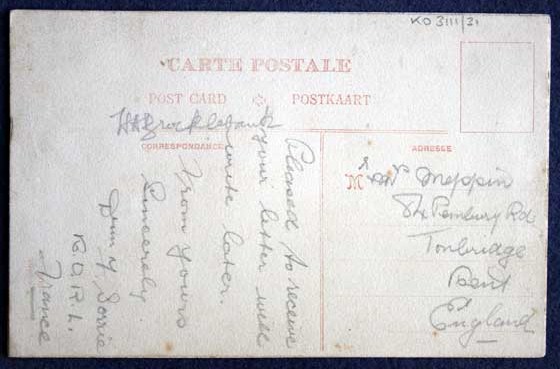 KO 3111/21
CARTE POSTALE
POST CARD POSTKAART
CORRESPONDANCE
ADRESSE
H A Brocklebank
Pleased to receive
your letter will
write later.
From Yours
Sincerely
Drm Y. Sorrie
K.O.R.L.
France
Mr Meppin
84 Pembury Rd
Tonbridge
Kent
England